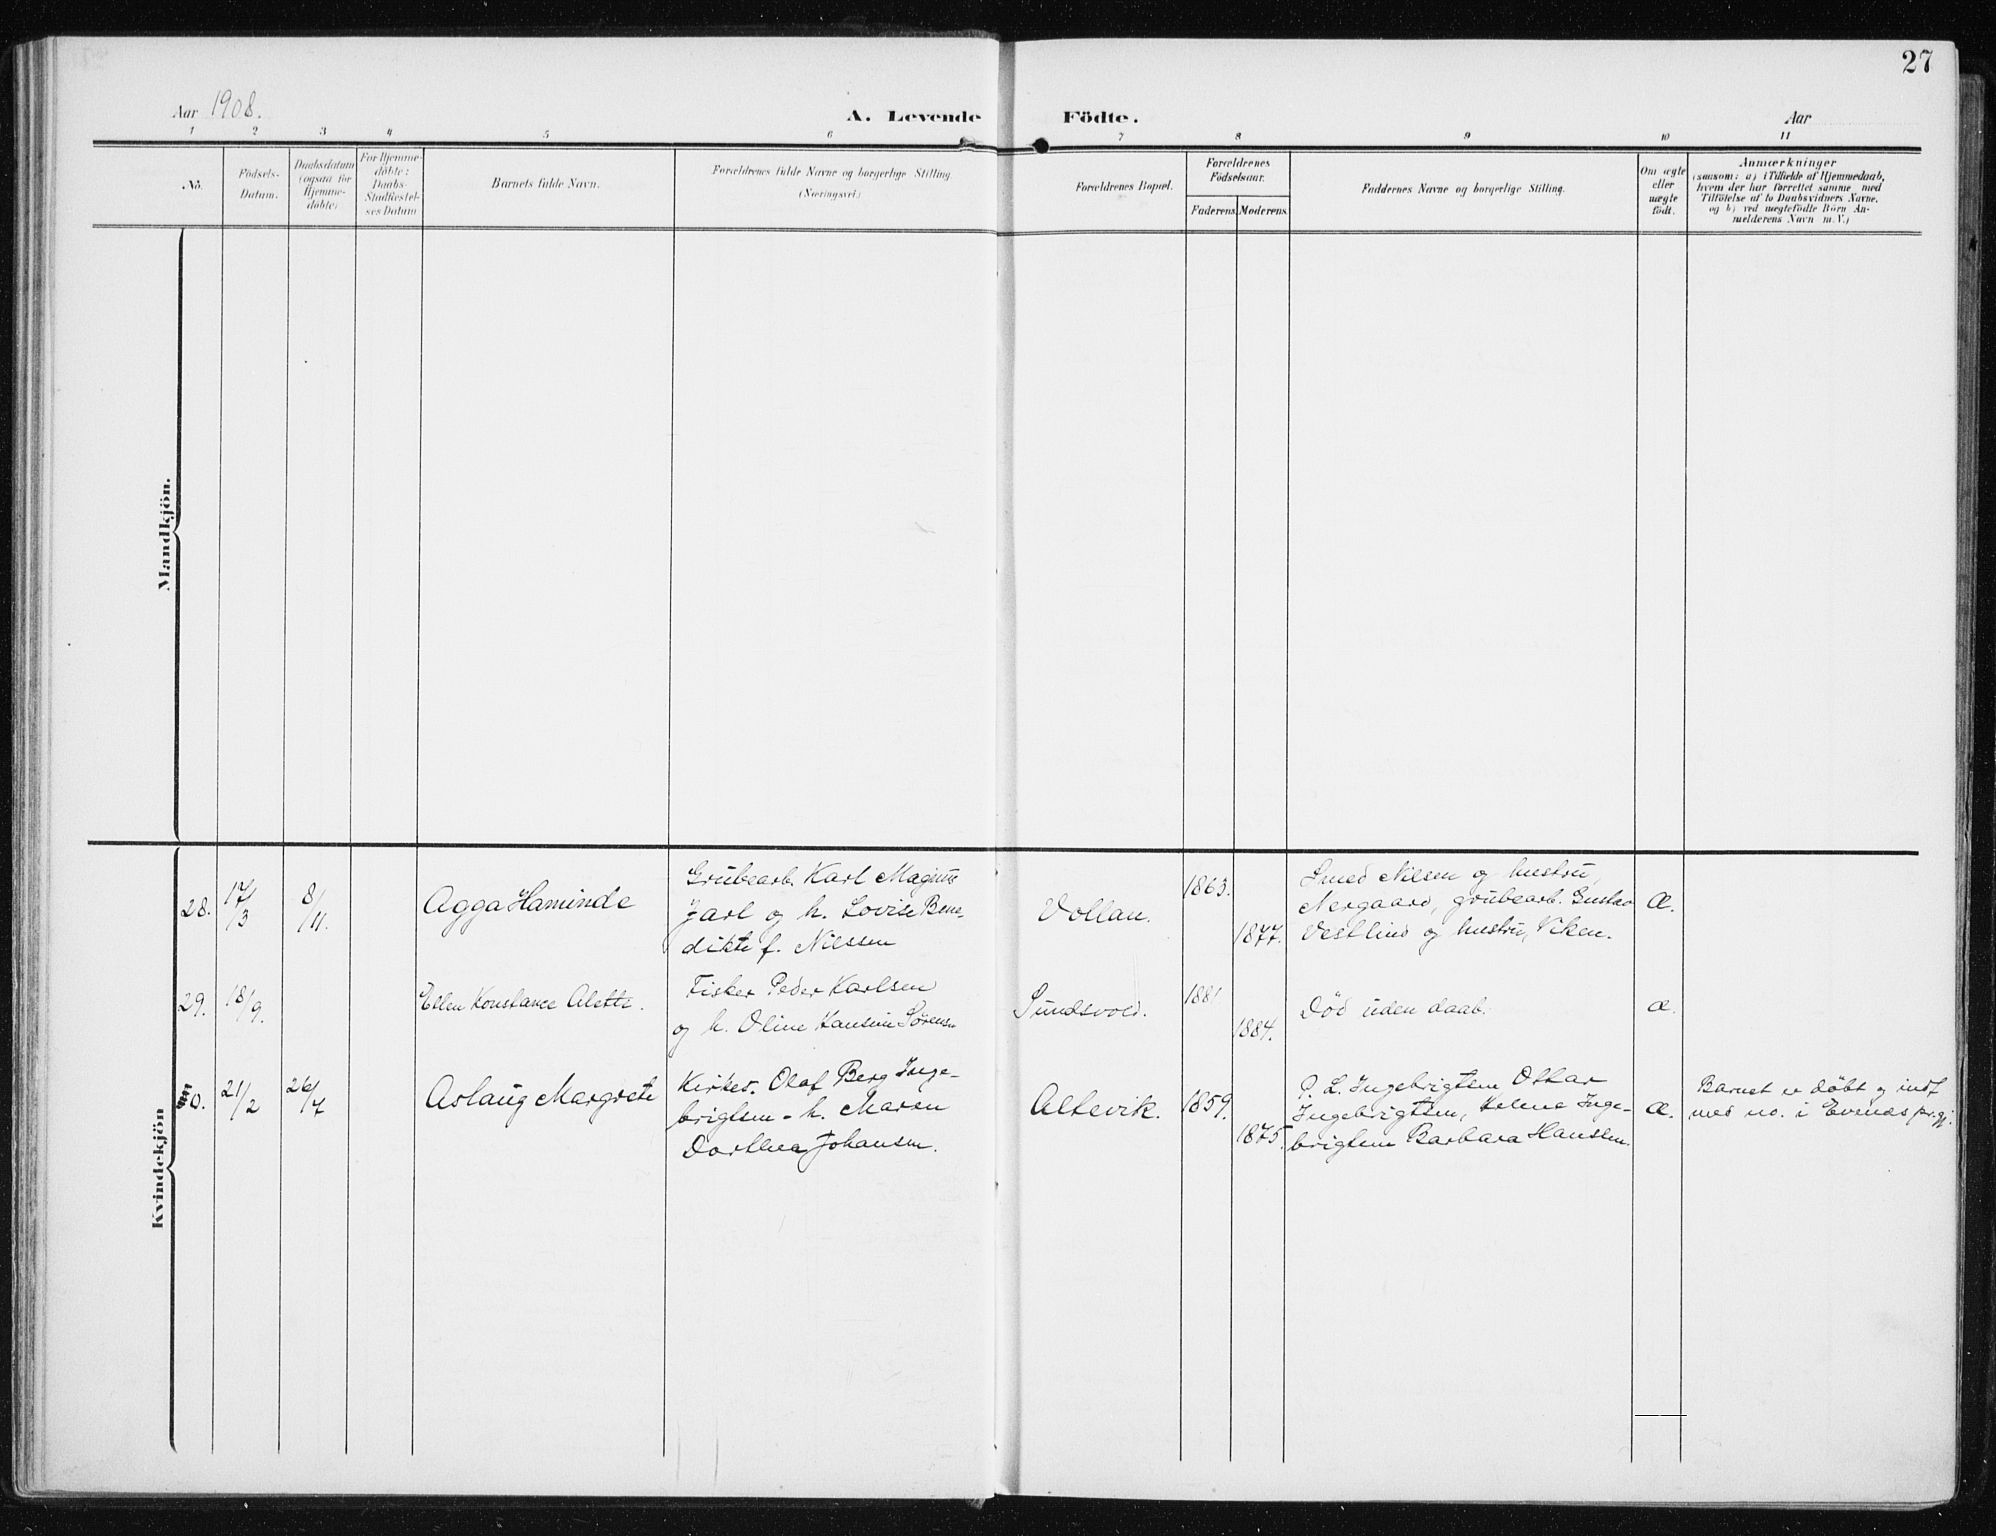 27
Aar 1908.
A. Levende Födte.
Aar
1 2 3 4 5 6 7 8 9 10 11
No.
Födsels-
Datum.
Daabsdatum
(ogsaa for
Hjemme-
döbte)
For Hjemme-
döbte:
Daabs-
Stadfæstel-
ses Datum
Barnets fulde Navn.
Forældrenes fulde Navne og borgerlige Stilling
(Næringsvei.)
Forældrenes Bopæl.
Forældrenes
Födselsaar.
Faderens Moderens
Faddernes Navne og borgerlige Stilling.
Om ægte
eller
uægte
födt.
Anmærkninger
(saasom: a) i Tilfælde af Hjemmedaab,
hvem der har forrettet samme med
Tilföielse af to Daabsvidners Navne,
og b) ved uægtefödte Börn An-
melderens Navn m. V.)
Mandkjön.
Kvindekjön
28. 17/3 8/11. Agga Haminde
Grubearb. Karl Magnus
Jarl og h. Lovise Bene
dikte f. Nilssen
Vollan. 1863. 1877.
Smed Nilsen og hustru,
Nergaard, grubearb. Gustav
Vestlind og hustru, Viken.
Æ.
29. 18/9. Ellen Konstance Alette.
Fisker Peder Karlsen
og h. Oline Hansine Sørensen
Sundsvold. 1881 1884.
Død uden daab.
Æ.
30. 21/2 26/7 Aslaug Margrete
Kirkes. Olaf Berg Inge-
brigtsen - h. Maren
Dorthea Johansen.
Altevik. 1859. 1875.
P. L. Ingebrigtsen Oskar
Ingebrigtsen, Helene Inge-
brigtsen Barbara Hanssen.
Æ.
Barnet er døbt og indf
med no. i Evenes pr.gj.